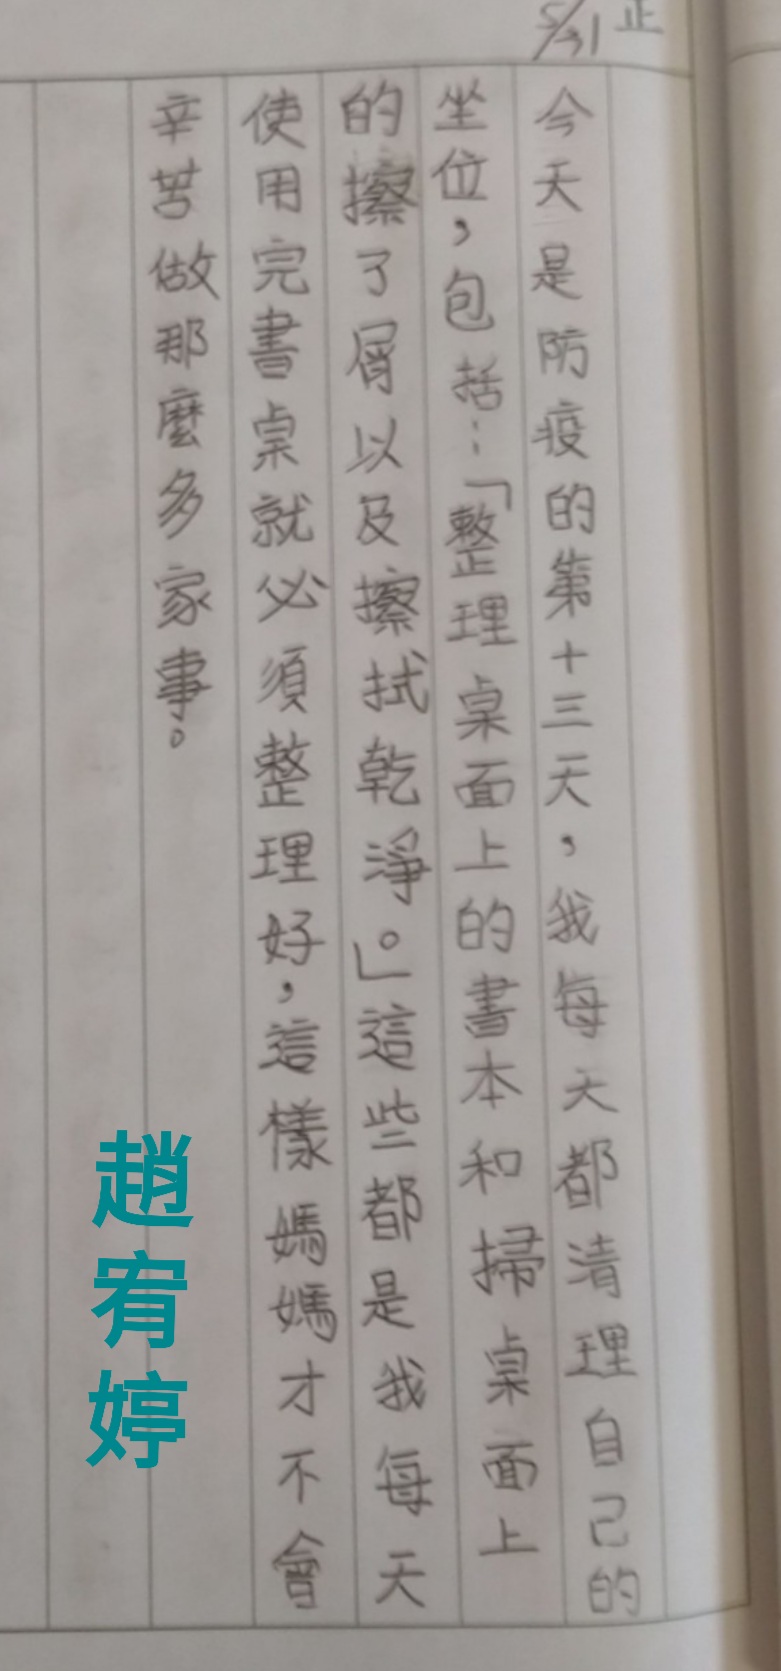 5/31
正
今天是防疫的第十三天，我每天都清理自己的
坐位，包括：「整理桌面上的書本和掃桌面上
的擦了屑以及擦拭乾淨。」這些都是我每天
使用完書桌就必須整理好，這樣媽媽才不會
辛苦做那麼多家事。
趙宥婷